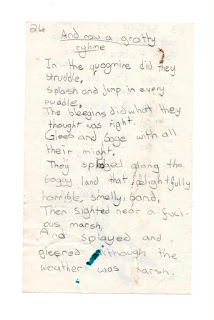 24
And now a grotty
ryhme
In the quogmire did they
struddle,
splash and jump in every
puddle,
The bleegins did what they
thought was right.
Gleed and oage with all
their might.
They splayed along the
boggy land that delightfully
horrible, smelly, pand,
Then sighted near a
ous marsh,
splayed and
gleered although the
weather was harsh.